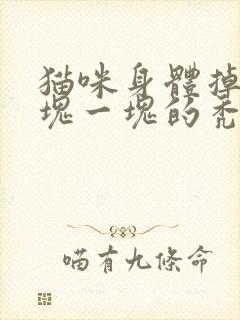 猫咪身體掉
塊一塊的禿
喵有九條命